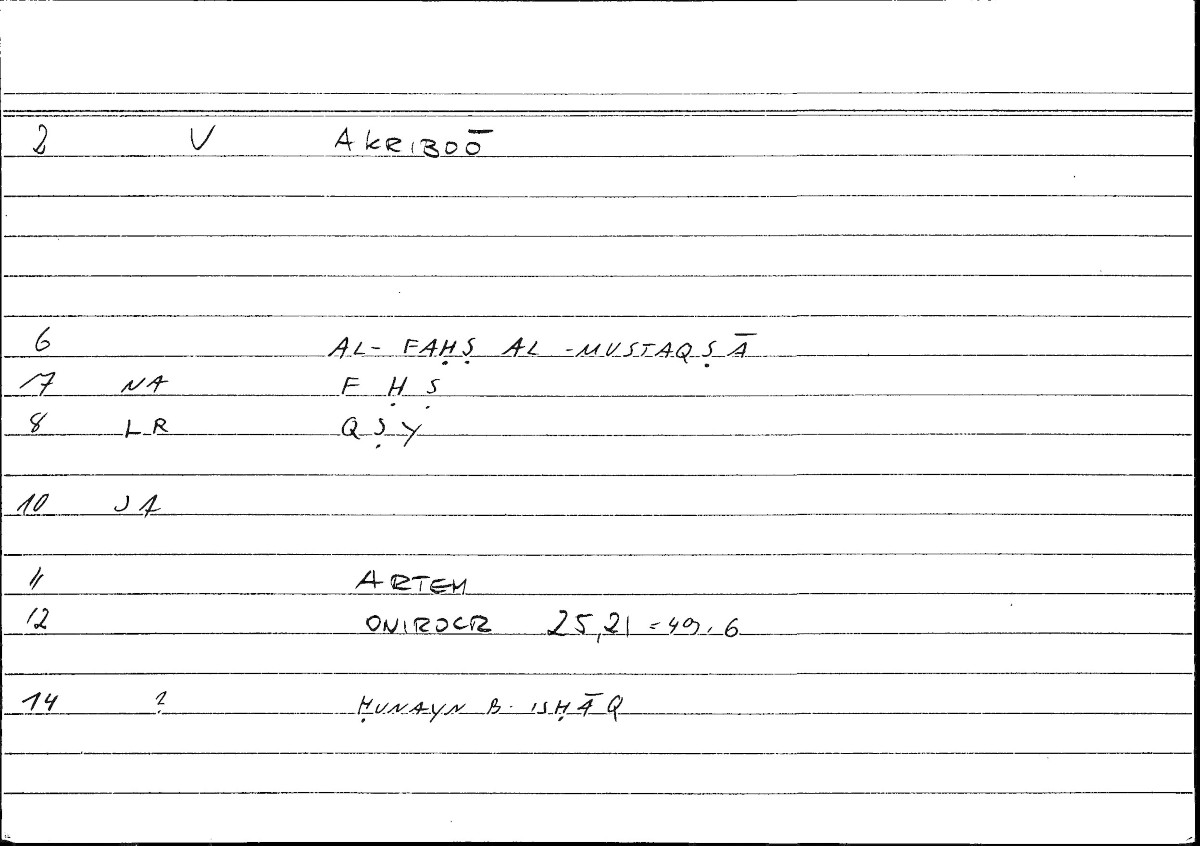 2 V AKRIBOŌ
6 AL-FAḤṢ AL-MUSTAQṢĀ
7 NA F Ḥ Ṣ
8 LR Q Ṣ Y
10 JA
11 ARTEM
12 ONIROCR 25,21 = 49,6
14 ? ḤUNAYN B. ISḤĀQ